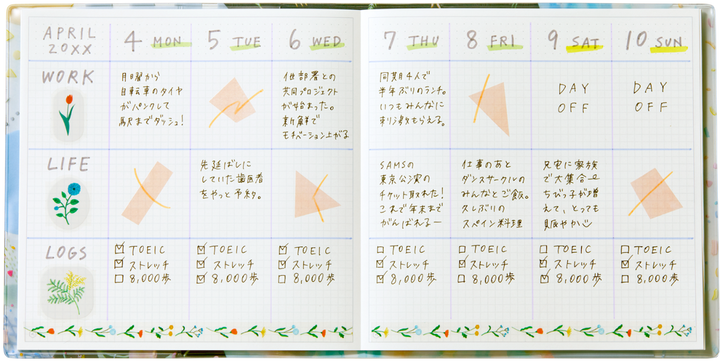 APRIL
20XX
4 MON
5 TUE
6 WED
7 THU
8 FRI
9 SAT
10 SUN
WORK
月曜から
自転車のタイヤ
がパンクして
駅までダッシュ!
他部署との
共同プロジェクト
が始まった。
新鮮で
モチベーション上がる
同期4人で
半年ぶりのランチ。
いつもみんなに
刺激もらえる。
DAY
OFF
DAY
OFF
LIFE
先延ばしに
していた歯医者
をやっと予約。
SAMSの
東京公演の
チケット取れた!
これで年末まで
がんばれるー
仕事のあと
ダンスサークルの
みんなとご飯。
久しぶりの
スペイン料理
兄宅に家族
で大集合ー
ちびっ子が増
えて、とっても
賑やか
LOGS
TOEIC
ストレッチ
8,000歩
TOEIC
ストレッチ
8,000歩
TOEIC
ストレッチ
8,000歩
TOEIC
ストレッチ
8,000歩
TOEIC
ストレッチ
8,000歩
TOEIC
ストレッチ
8,000歩
TOEIC
ストレッチ
8,000歩